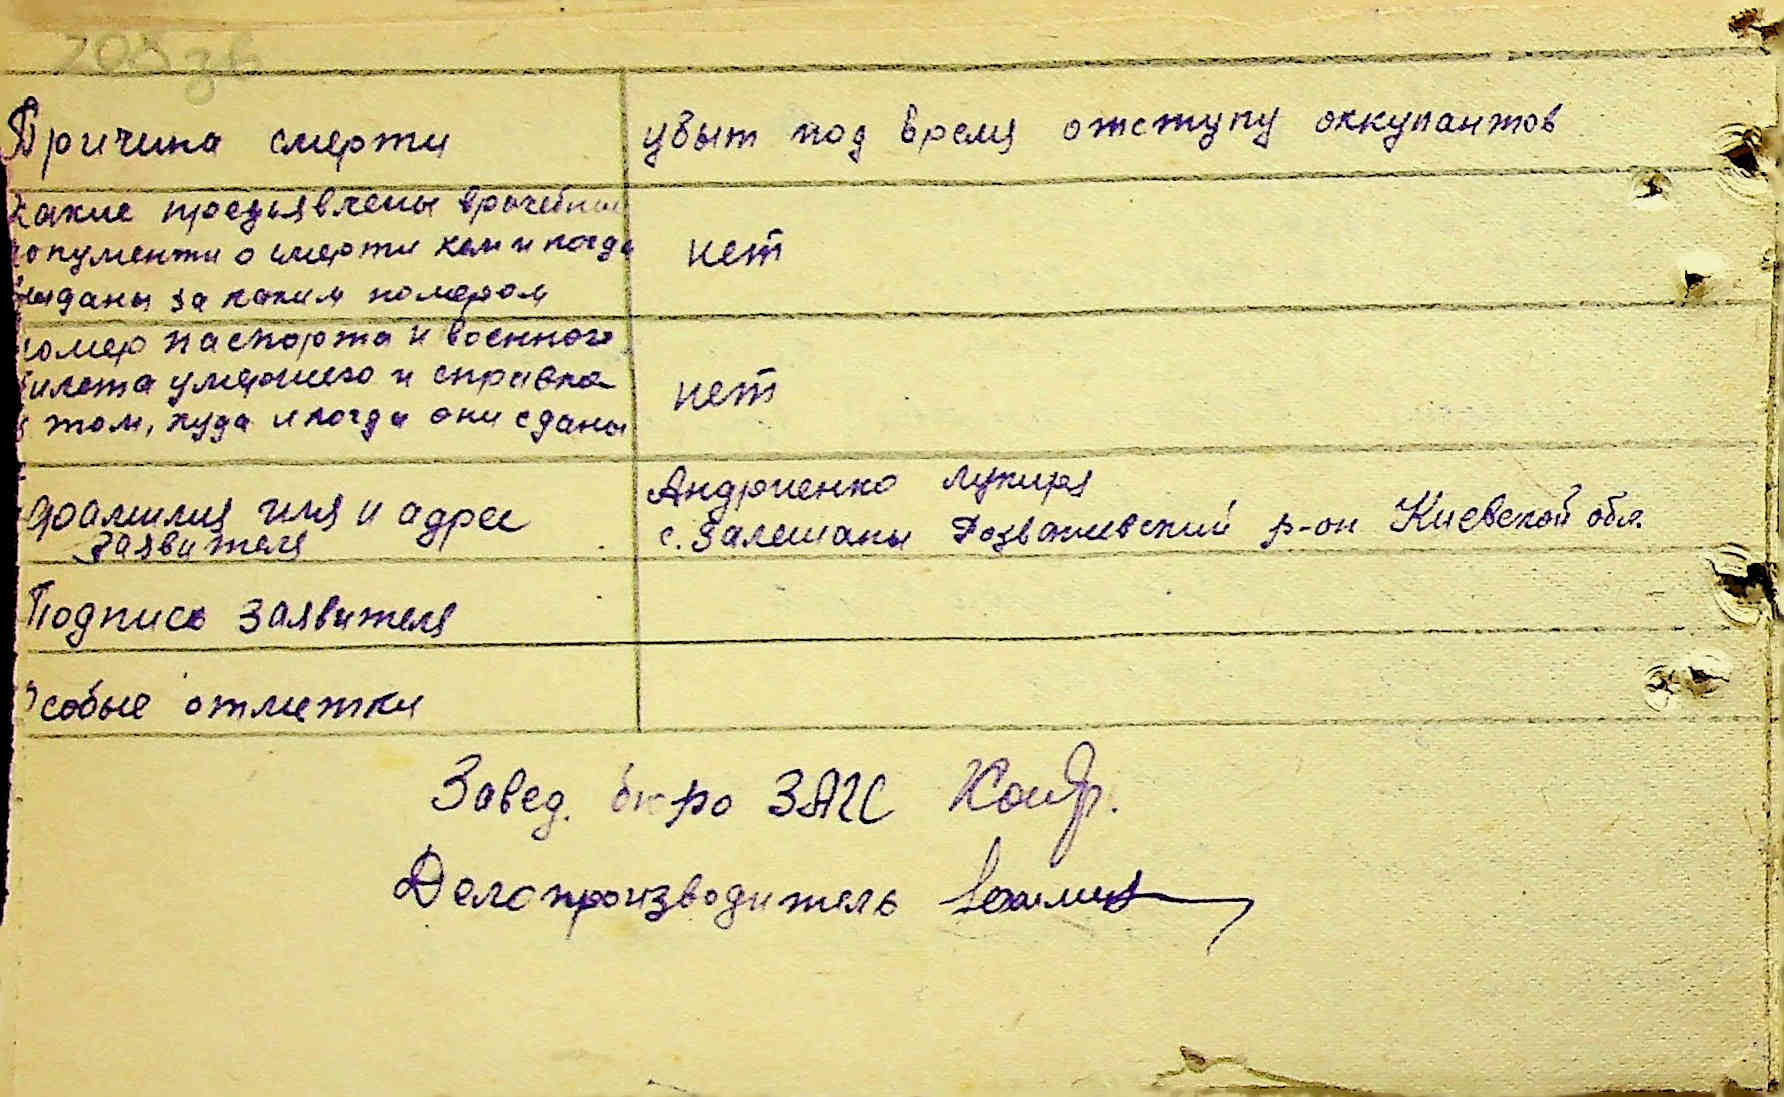 Причина смерти
убыт под время отступу оккупантов
Какие предъявлены врачебные
документи о смерти кем и когда
выданы за каким номером
нет
номер паспорта и военного
билета умершего и справка
о том, куда и когда они сданы
нет
Фамилия имя и адрес
заявителя
Андриенко Лукиря
с. Залешаны Розважевский р-он Киевской обл.
Подпись заявителя
Особые отметки
Завед. бюро ЗАГС
Делопроизводитель